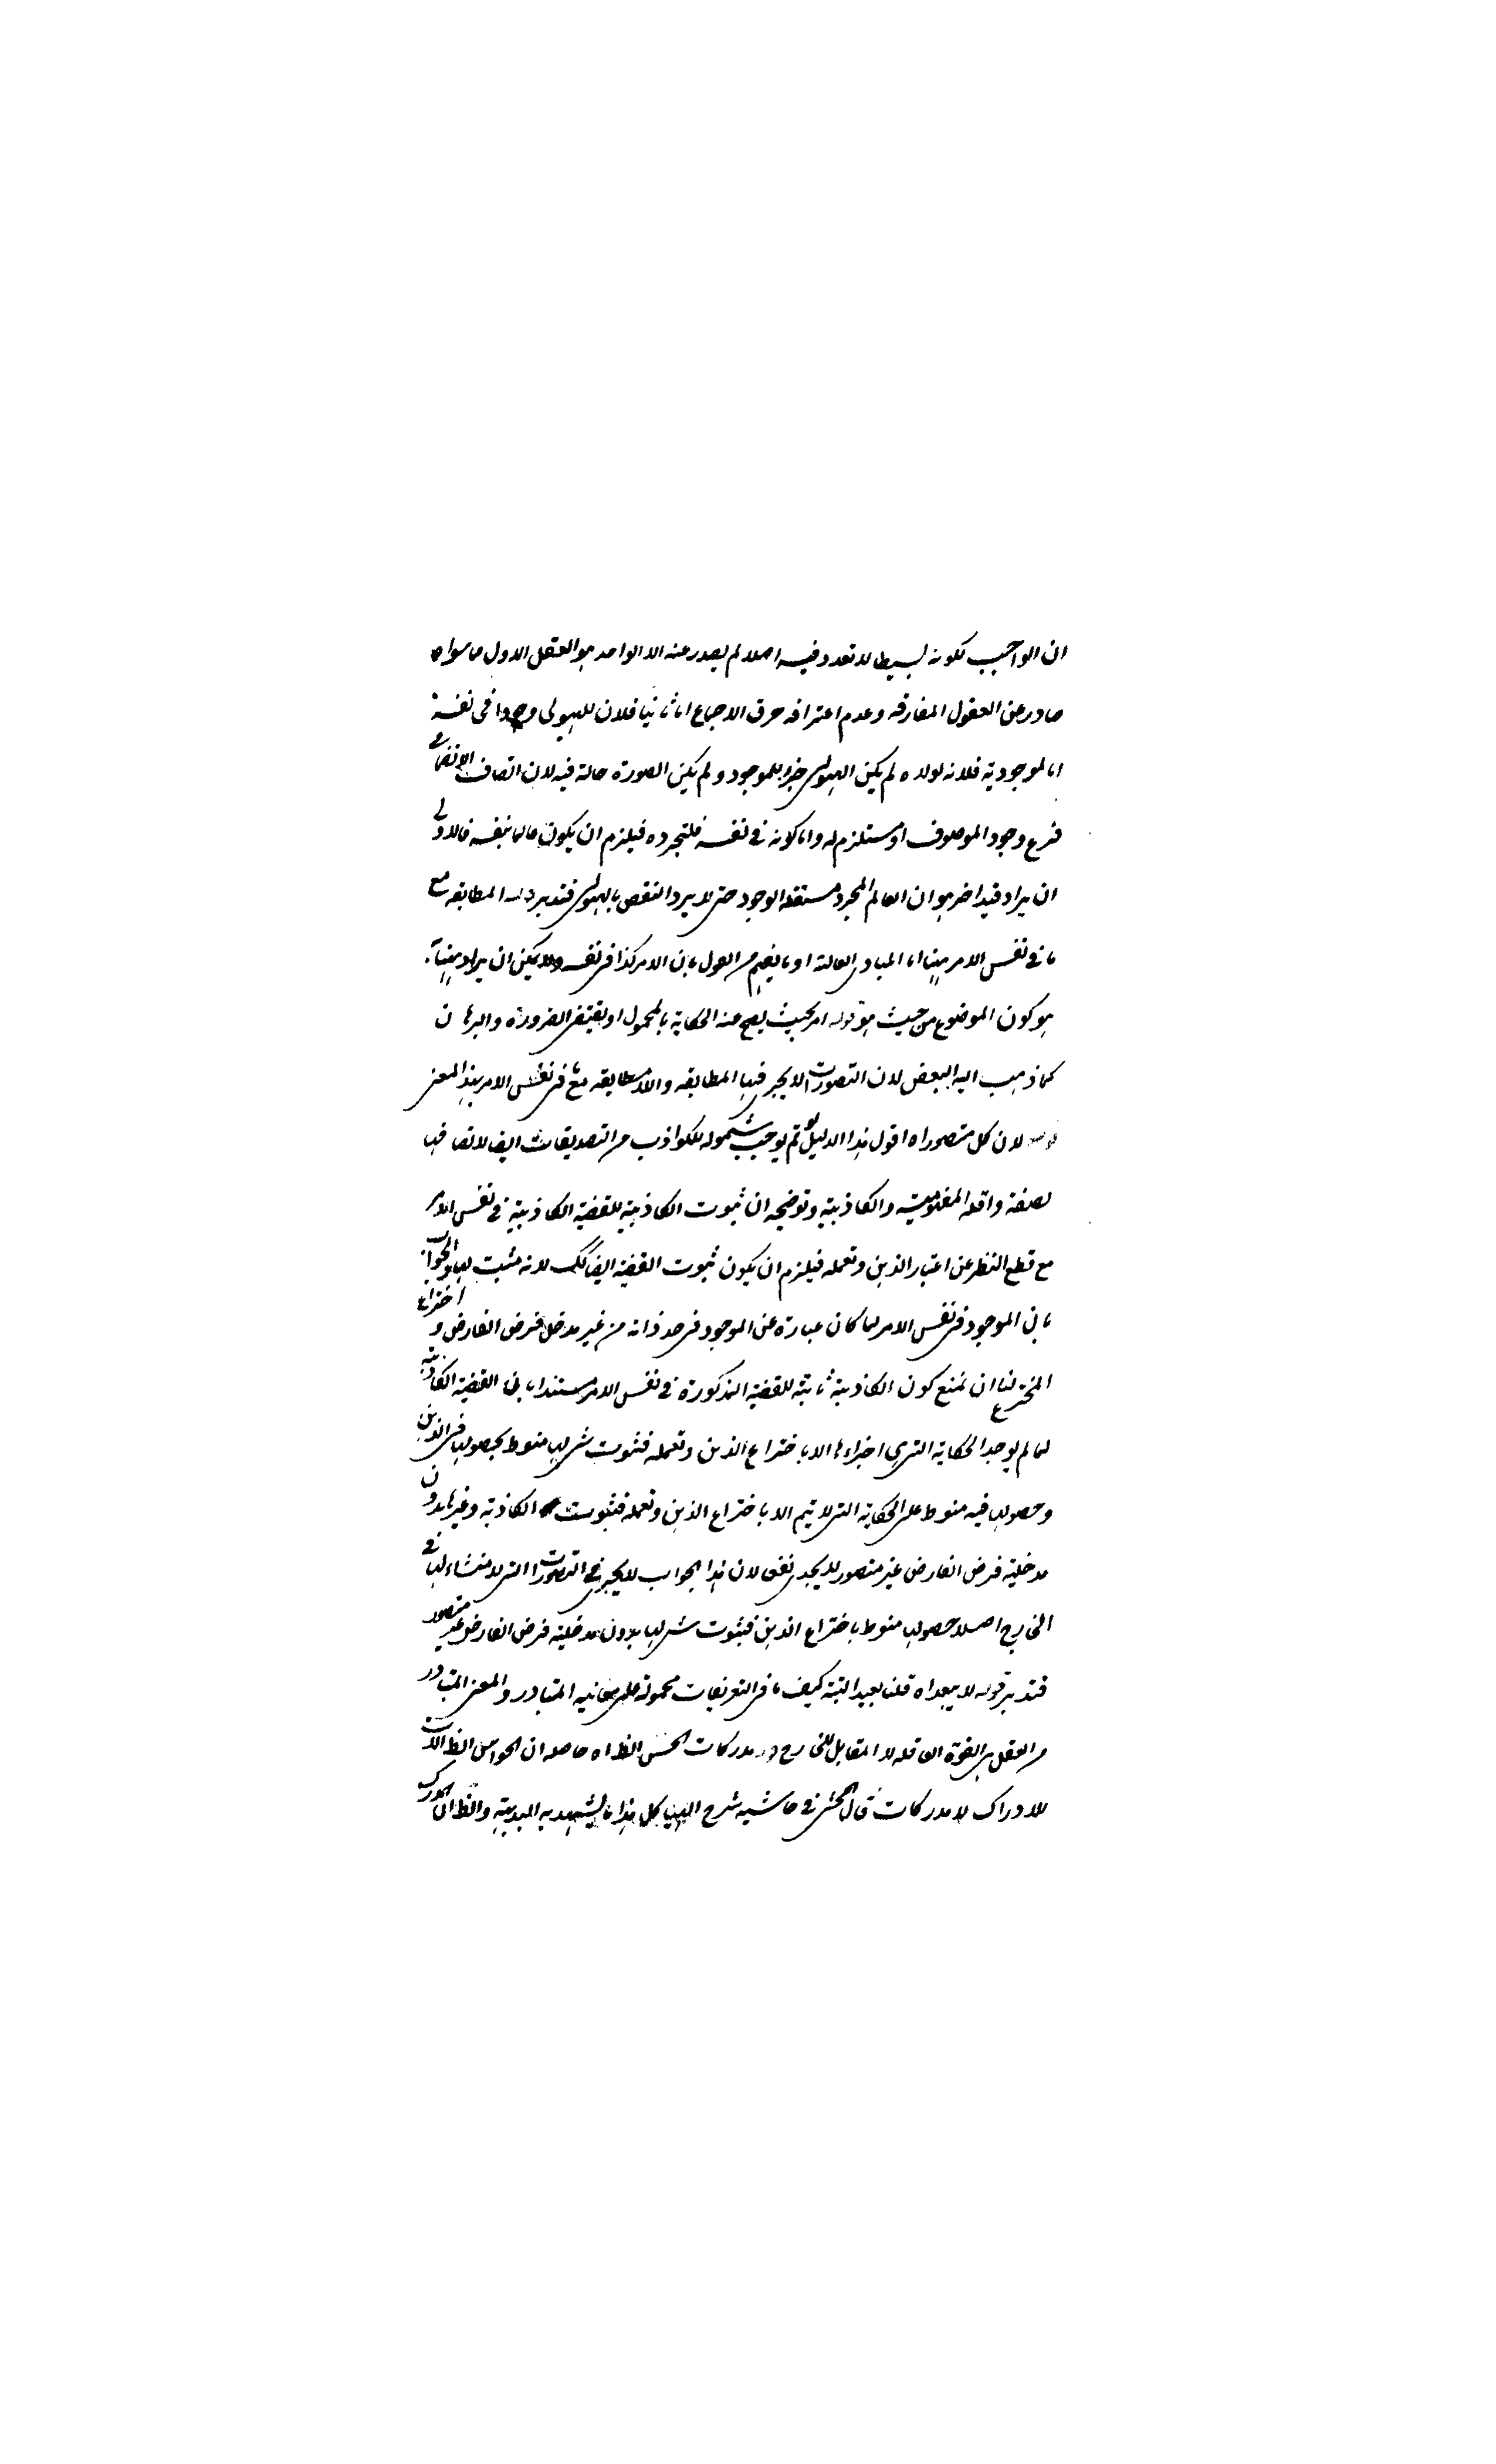 ان الواجب لكونه بسيطا لا تعدد فيه اصلا لم يصدر عنه الا الواحد هو العقل الاول ما سواه
صادر عن العقول المفارقه وعدم اعترافه خرق الاجماع اما ثانيا فلان للهيولى وجودا فى نفسه
اما لموجودية فلانه لولاه لم يكن الهيولى جزء للموجود ولم يكن الصورة حالة فيه لان اتصاف الانضمامى
فرع وجود الموصوف او مستلزم له واما كونه فى نفسه فلتجرده فيلزم ان يكون عالما بنفسه فالاولى
ان يراد قيدا اخر هو ان العالم المجرد مستقلة الوجود حتى لا يرد النقص بالهيولى فتدبر قوله المطابقه مع
ما فى نفس الامر ههنا اما المبادى العالية او ما يفهم من القول بان الامر كذا فى نفسه ولا يمكن ان يراد ههنا
هو كون الموضوع من حيث هو قوله امر بحيث يصح عنه الحكاية بالمحمول او يقتضى الضرورة والبرهان
كما ذهب اليه البعض لان التصورات لا يجرى فيها المطابقه واللا مطابقه مع ما فى نفس الامر بهذا المعنى
قوله لان كل متصور اه اقول هذا الدليل لو تم يوجب شموله للكواذب من التصديقات ايضا لاتصافها
لصفة واقعة المفهومية والكاذبية وتوضيحه ان ثبوت الكاذبية للقضية الكاذبية فى نفس الامر
مع قطع النظر عن اعتبار الذهن وتعمله فيلزم ان يكون ثبوت القضية ايضا كك لانه مثبت لها والجواب
بان الموجود فى نفس الامر لما كان عبارة عن الموجود فى حد ذاته من غير مدخل فرض الفارض و اختراع
المخترع لنا ان نمنع كون الكاذبية ثابتة للقضية المذكورة فى نفس الامر مستندا بان القضية الكاذبة
لما لم يوجد الحكاية التى هى اجزاءها الا باختراع الذهن وتعمله فثبوت شى لها منوط بحصولها فى الذهن
وحصولها فيه منوط على الحكاية التى لا تتم الا باختراع الذهن وتعمله فثبوت الكاذبة وغيرها بدون
مدخلية فرض الفارض غير متصور لا يجدى نفعا لان هذا الجواب لا يجرى فى التصورات التى لا منشاء لها فى
الخارج اصلا حصولها منوط باختراع الذهن فثبوت شى لها بدون مدخلية فرض الفارض غير متصور
فتدبر قوله لا يبعد اه قلنا بعيد البتة كيف ما فى التعريفات محمولة على معانيه المتبادر والمعنى المتبادر
من العقل هى القوة العاقلة لا المقابل للخارج قوله مدركات الحس الظ اه حاصله ان الحواس الظ الات
للادراك لا مدركات قال المحشى فى حاشيه شرح الهياكل هذا ما يشهد به البديهية والظ ان المدرك